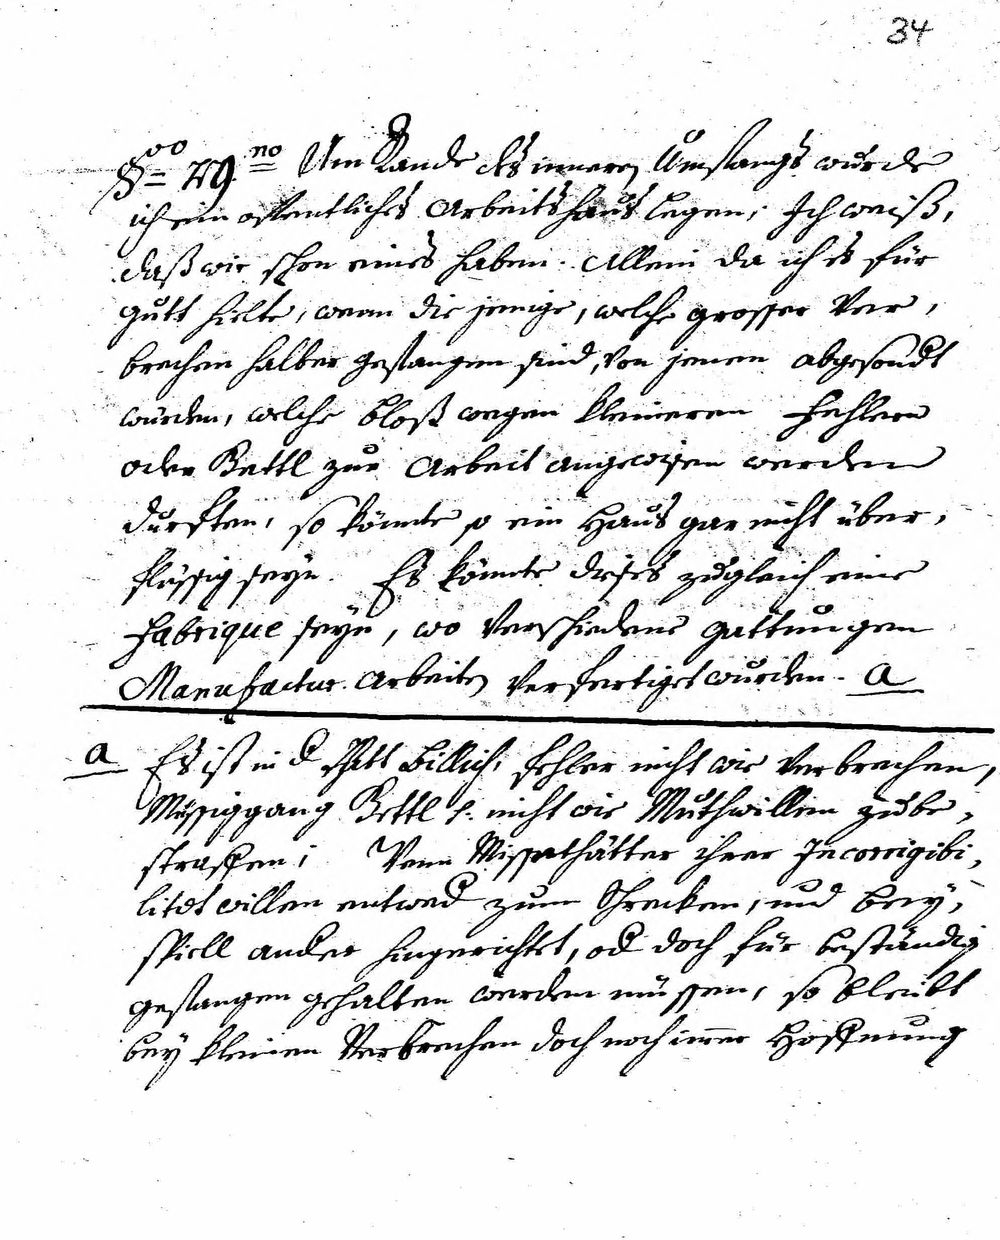 34
§vo 29no Am Rande des inneren Umfangs wurde
ich ein offentliches Arbeitshaus legen; Ich weiß,
daß wir schon eines haben. Allein da ich es für
gutt hielte, wenn die jenige, welche grosser Ver,
brechen halber gefangen sind, von jenen abgesondt
wurden, welche bloß wegen kleineren Fehlern
oder Bettl zur Arbeit angewisen werden
durften, so könnte so ein Haus gar nicht über,
flüssig seyn. Es könnte dises zugleich eine
Fabrique seyn, wo verschiedene gattungen
Manufactur Arbeiten verfertiget wurden. a
a Es ist in d That billich, fehler nicht wie verbrechen,
Müssiggang Bettl &. nicht wie Muthwillen zu be,
straffen; Wenn Missethätter ihrer Incorrigibi,
litet willen entwed zum Schrecken, und bey,
spiell ander hingerichtet, od doch für beständig
gefangen gehalten werden müssen, so bleibt
bey kleinen Verbrechen doch noch imer Hoffnung